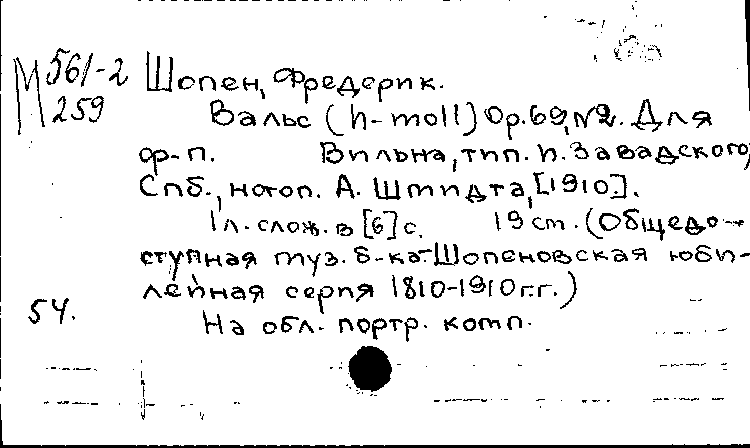 М 561-2
259
Шопен, Фредерик.
Вальс (h-moll) Op.69, №2. Для
ф-п. Вильна, тип. И. Завадского,
Спб., нотоп. А. Шмидта, [1910].
1 л. слож. в [6] с. 19 см. (Общедо-
ступная муз. б-ка. Шопеновская юби-
лейная серия 1810-1910 г.г.)
54.
На обл. портр. комп.